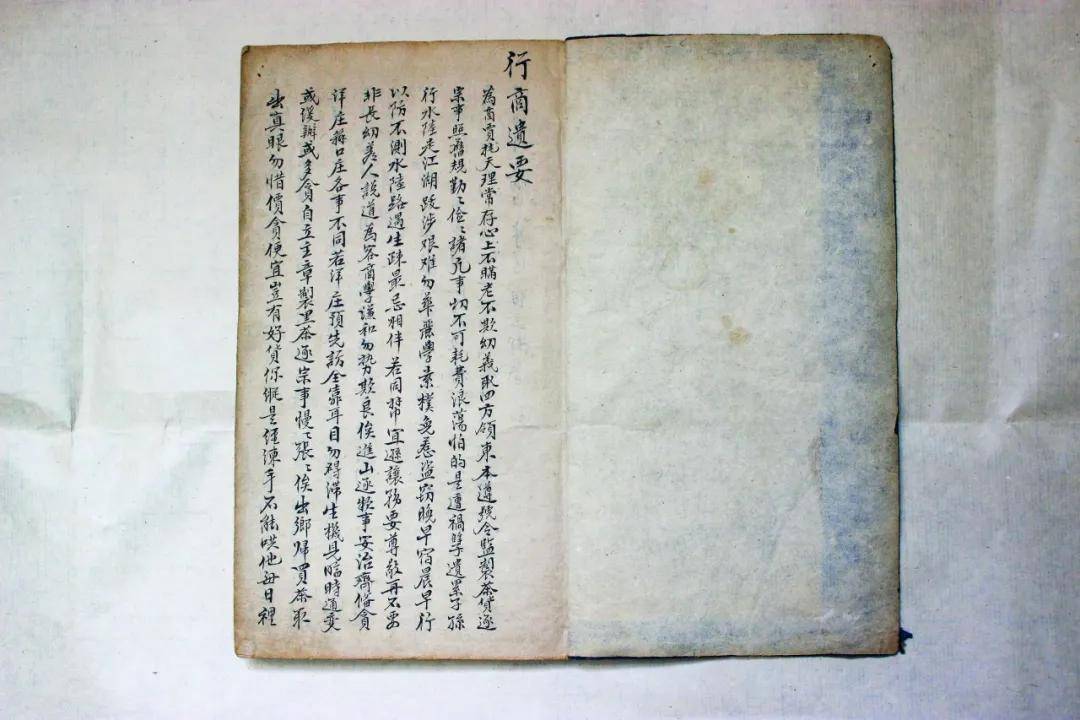 行商遺要
為商賈把天理常存心上不瞞老不欺幼義取四方領東本遵號令監製茶貨逐
宗事照舊規勤〻儉〻諸凡事切不可耗費浪蕩怕的是遭禍孽遺累子孫
行水陸走江湖跋涉艰难勿華麗學素樸免惹盜竊晚早宿晨早行
以防不測水陸路遇生疎最忌相伴若同幫宜遜讓務要尊敬再不要
非長幼惹人說道為客商學谦和勿势欺良俟進山逐欵事安治齊俻貪
洋庄辦口庄各事不同若洋庄預先訪全靠耳目勿碍滞生機見臨時通变
或後辦或多貪自立主章製黑茶逐宗事慢〻張〻俟出鄉归買茶取
出真眼勿惜價貪便宜豈有好貨你縱是經練手不能哄他每日裡